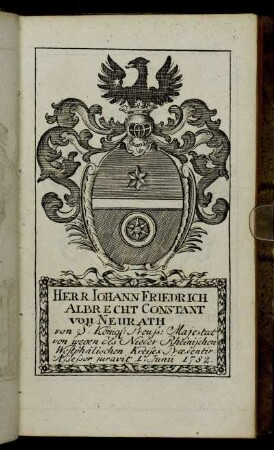 HERR IOHANN FRIEDRICH
ALBRECHT CONSTANT
VON NEURATH
von S. Königl: Preuß: Majestaet
von wegen des Nieder Rheinischen
Westphälischen Kreises Præsentir
Assessor juravit 1. Junii 1782.